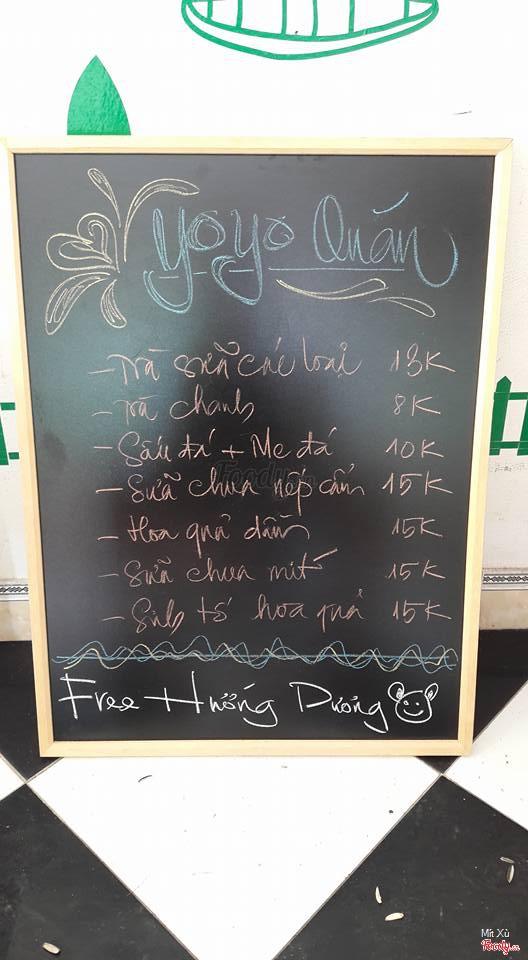 YoYo Quán
- Trà sữa các loại 13K
- Trà chanh 8K
- Sấu đá + Me đá 10K
- Sữa chua nếp cẩm 15K
- Hoa quả dầm 15K
- Sữa chua mít 15K
- Sinh tố hoa quả 15K
Free Hướng Dương
Foody.vn
Mít Xù
Foody.vn